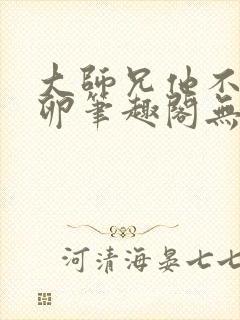 大師兄他不
卵筆趣閣無
河清海晏七七